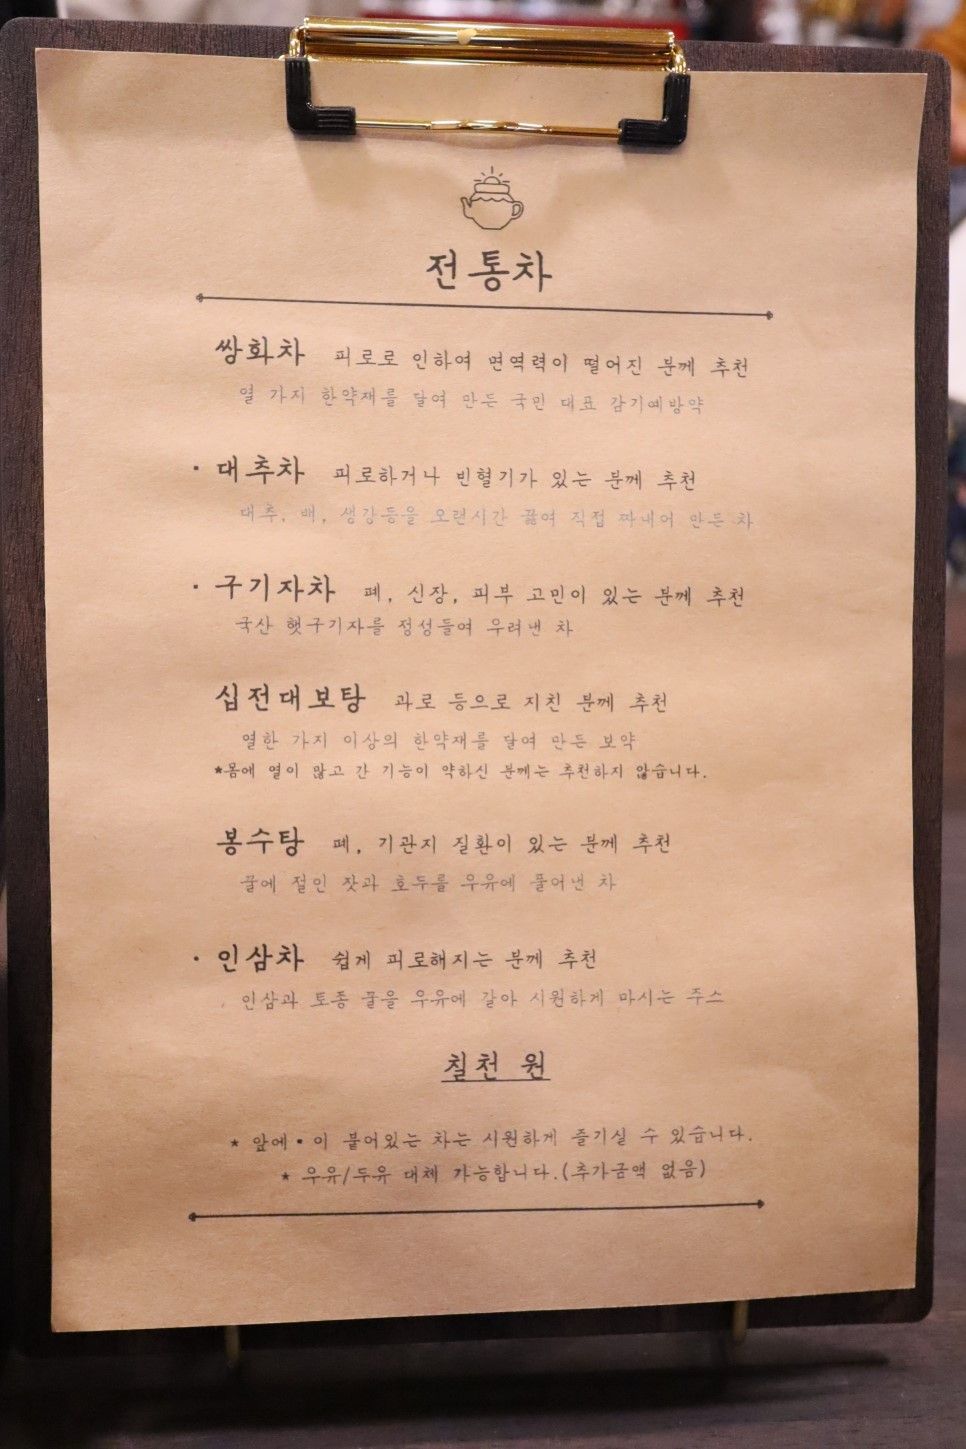 전통차
쌍화차 피로로 인하여 면역력이 떨어진 분께 추천
열 가지 한약재를 달여 만든 국민 대표 감기예방약
· 대추차 피로하거나 빈혈기가 있는 분께 추천
대추, 배, 생강등을 오랜시간 끓여 직접 짜내어 만든 차
· 구기자차 폐, 신장, 피부 고민이 있는 분께 추천
국산 햇구기자를 정성들여 우려낸 차
십전대보탕 과로 등으로 지친 분께 추천
열한 가지 이상의 한약재를 달여 만든 보약
*몸에 열이 많고 간 기능이 약하신 분께는 추천하지 않습니다.
봉수탕 폐, 기관지 질환이 있는 분께 추천
꿀에 절인 잣과 호두를 우유에 풀어낸 차
· 인삼차 쉽게 피로해지는 분께 추천
인삼과 토종 꿀을 우유에 갈아 시원하게 마시는 주스
칠천 원
* 앞에 • 이 붙어있는 차는 시원하게 즐기실 수 있습니다.
* 우유/두유 대체 가능합니다.(추가금액 없음)